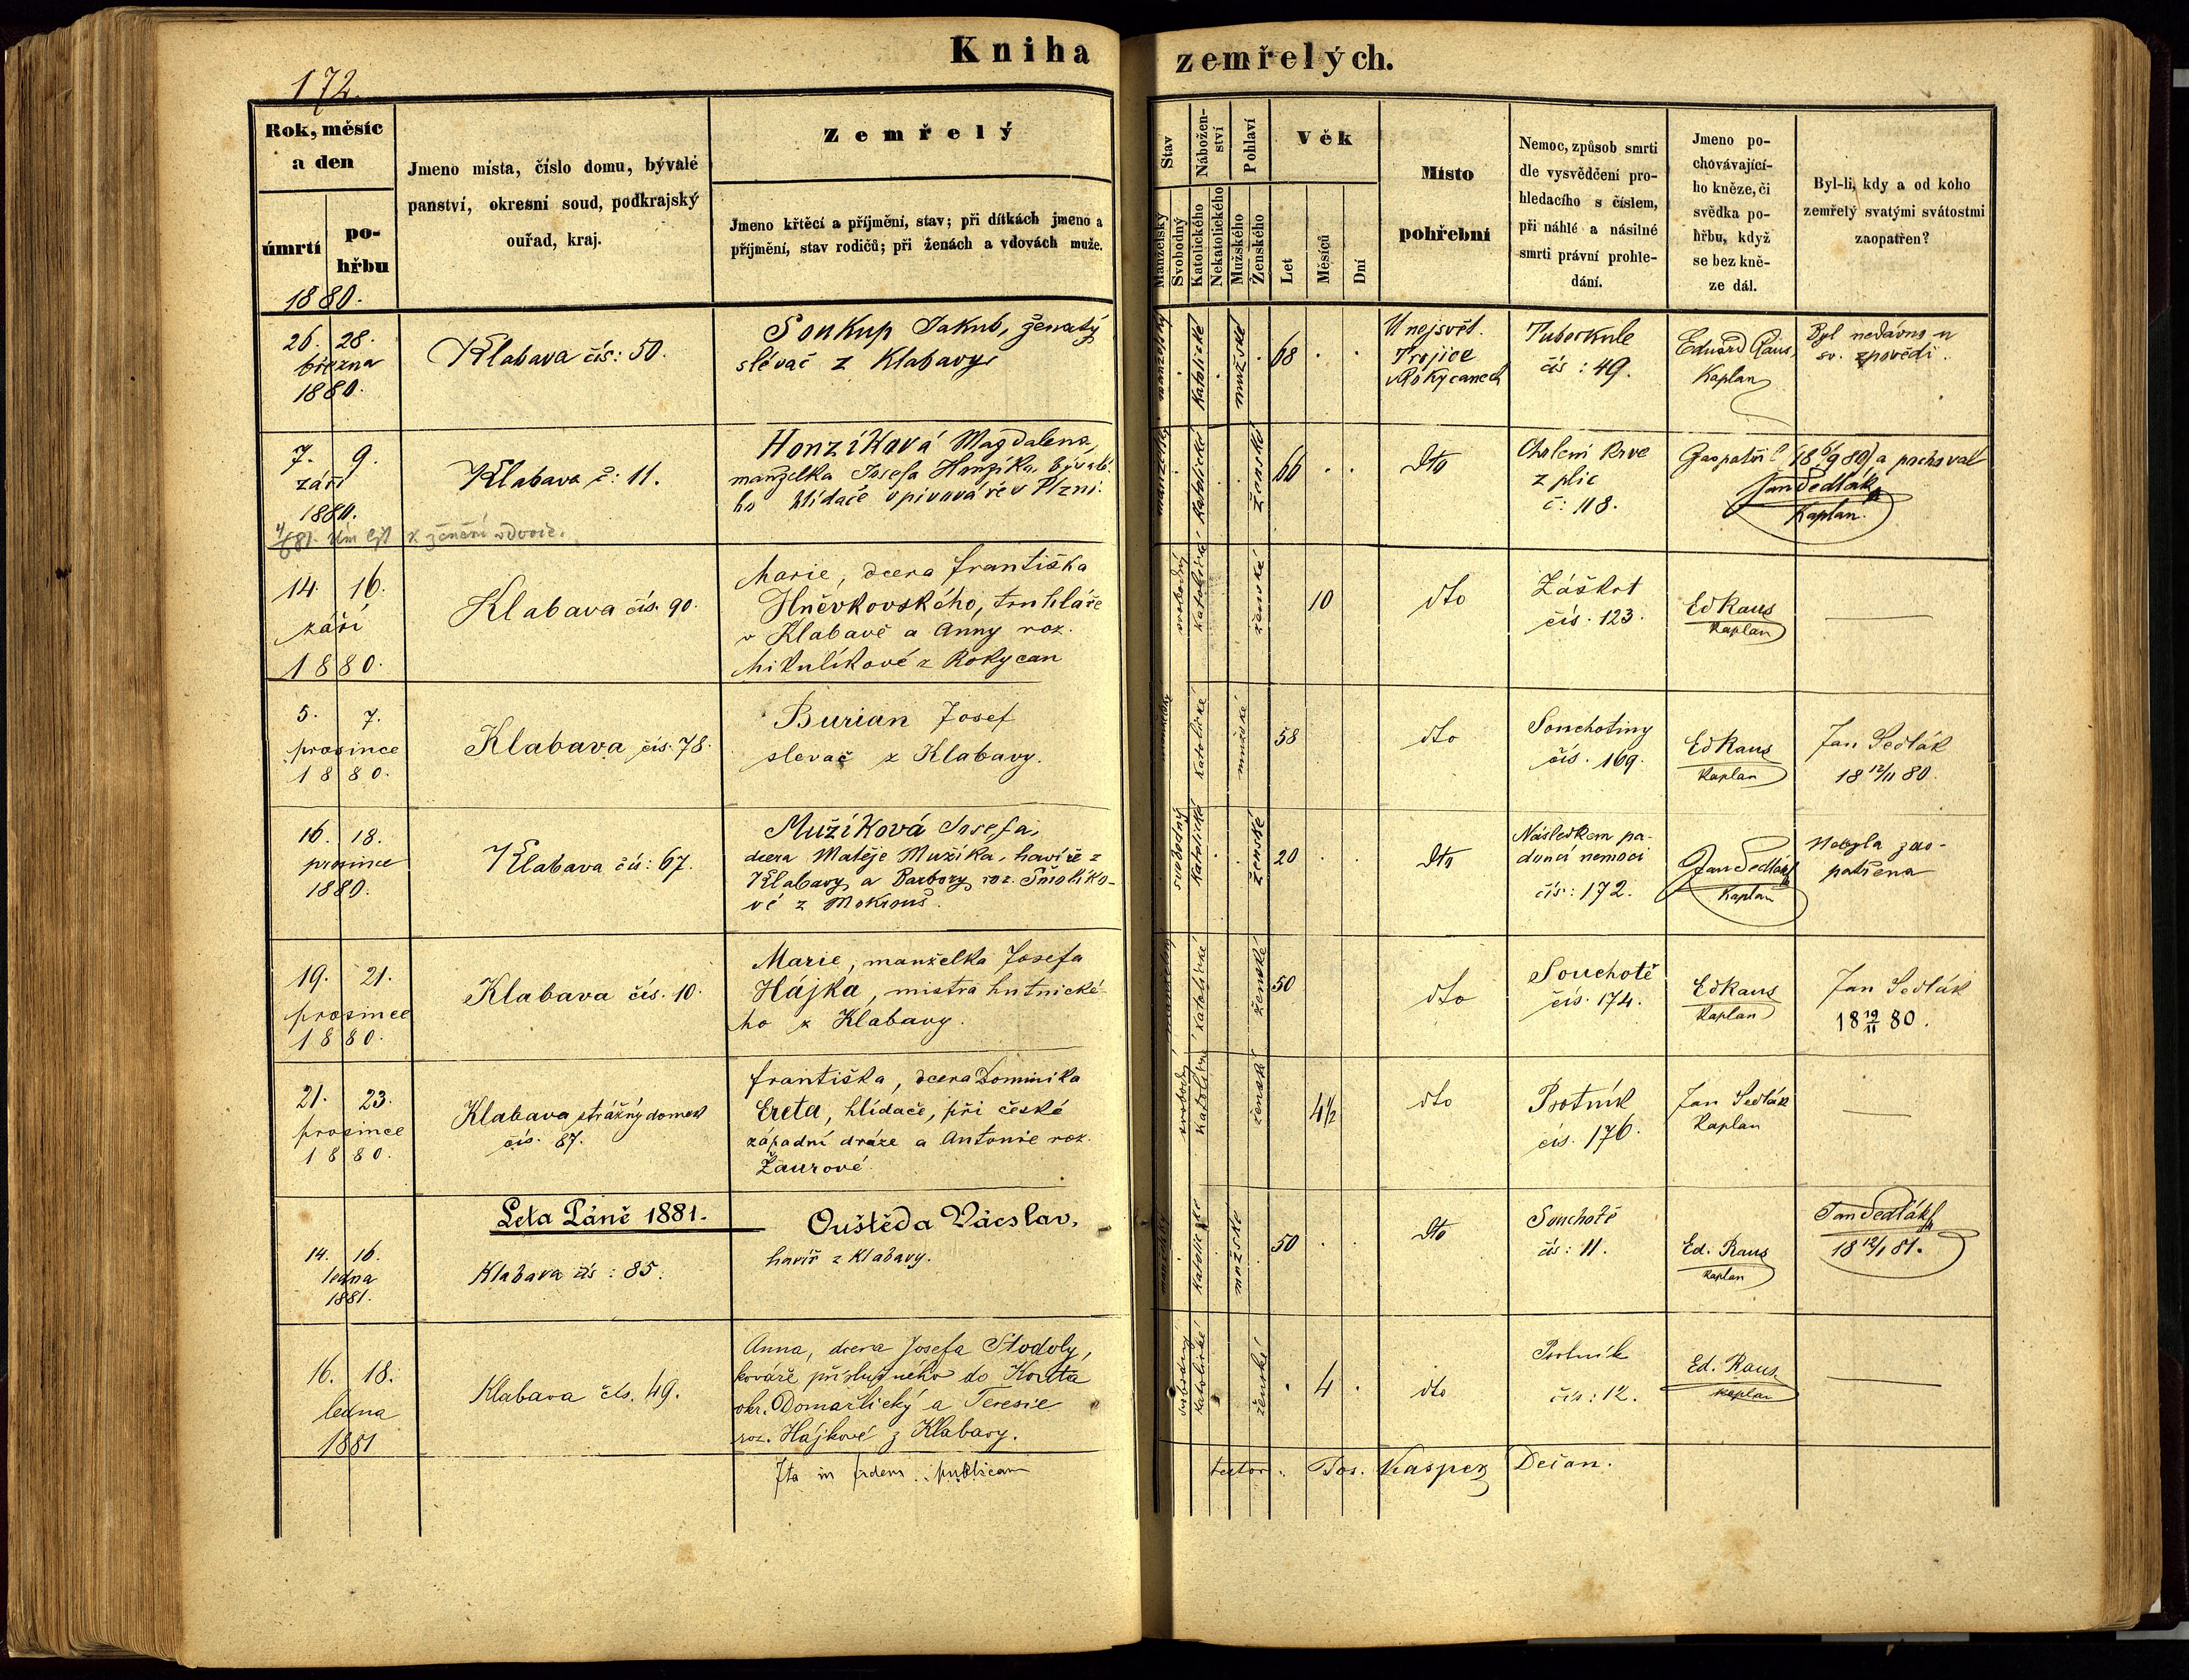 Kniha zemřelých.
172.
Rok, měsíc a den
úmrtí
pohřbu
Jmeno místa, číslo domu, bývalé panství, okresní soud, podkrajský ouřad, kraj.
Zemřelý
Jmeno křtěcí a příjmění, stav; při dítkách jmeno a příjmění, stav rodičů; při ženách a vdovách muže.
Stav
Manželský
Svobodný
Náboženství
Katolického
Nekatolického
Pohlaví
Mužského
Ženského
Věk
Let
Měsíců
Dní
Místo pohřební
Nemoc, způsob smrti dle vysvědčení prohledacího s číslem, při náhlé a násilné smrti právní prohledání.
Jmeno pochovávajícího kněze, či svědka pohřbu, když se bez kněze dál.
Byl-li, kdy a od koho zemřelý svatými svátostmi zaopatřen?
1880.
26. 28.
března
1880.
Klabava čís: 50.
Soukup Jakub, ženatý
slévač z Klabavy
manželský
Katolické
mužské
68
U nejsvět.
Trojice
v Rokycanech
Tuberkule
čís: 49.
Eduard Raus,
Kaplan
Byl nedávno u
sv. zpovědi.
7. 9.
září
1880.
Klabava č: 11.
Honzíková Magdalena,
manželka Josefa Honzíka, bývalé-
ho hlídače v pivováře v Plzni.
Katolické
Ženské
66
dto
Chrlení krve
z plic
č: 118.
Zaopatřil (18 6/9 80) a pochoval
Jan Sedlák
Kaplan.
4/6 81. Úm list k ženění vdovce.
14. 16.
září
1880.
Klabava čís. 90.
Marie, dcera Františka
Hněvkovského, truhláře
v Klabavě a Anny roz.
Mikulíkové z Rokycan
svobodný
katolické
ženské
10
dto
Záškrt
čís. 123.
Ed Raus
Kaplan
5. 7.
prosince
1880.
Klabava čís. 78.
Burian Josef
slevač z Klabavy.
manželský
katolické
mužské
58
dto
Souchotiny
čís. 169.
Ed Raus
Kaplan
Jan Sedlák
18 12/11 80.
16. 18.
prosince
1880.
Klabava čís: 67.
Mužíková Josefa,
dcera Matěje Mužíka, havíře z
Klabavy a Barbory roz. Smolíko-
vé z Mokrouš.
svobodný
Katolická
Ženské
20
dto
Následkem pa-
doucí nemoci
čís: 172.
Jan Sedlák
Kaplan
Nebyla zao-
patřena
19. 21.
prosince
1880.
Klabava čís. 10.
Marie, manželka Josefa
Hájka, mistra hutnické-
ho z Klabavy.
manželský
katolické
ženské
50
dto
Souchotě
čís. 174.
Ed Raus
Kaplan
Jan Sedlák
18 19/11 80.
21. 23.
prosince
1880.
Klabava strážný domek
čís. 87.
Františka, dcera Dominika
Ereta, hlídače, při české
západní dráze a Antonie roz.
Žaurové.
svobodný
Katolické
ženské
4 1/2
dto
Psotník
čís. 176.
Jan Sedlák
Kaplan
Leta Páně 1881.
14. 16.
ledna
1881.
Klabava čís: 85.
Ouštěda Václav,
havíř z Klabavy.
manželský
Katolické
mužské
50
dto
Souchotě
čís: 11.
Ed. Raus
Kaplan
Jan Sedlák
18 12/1 81.
16. 18.
ledna
1881
Klabava čís. 49.
Anna, dcera Josefa Stodoly,
kováře příslušného do Kouta
okr. Domažlický a Teresie
roz. Hájkové z Klabavy.
svobodný
Katolické
ženské
4
dto
Psotník
čís: 12.
Ed. Raus
Kaplan
Ita in fidem publicam testor: Jos. Kasper Děcan.